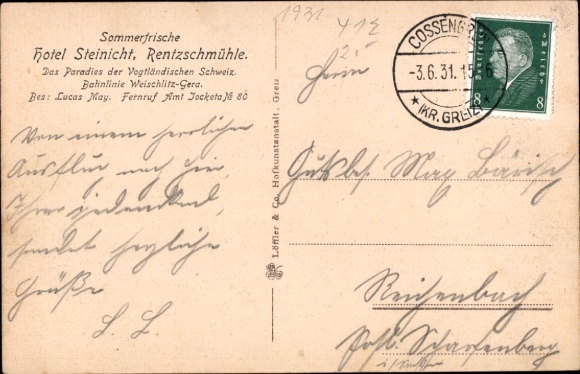 Sommerfrische
Hotel Steinicht, Rentzschmühle.
Das Paradies der Vogtländischen Schweiz.
Bahnlinie Weischlitz-Gera.
Bes: Lucas May. Fernruf Amt Jocketa № 80
Von einem herrlichen
Ausflug nach hier,
Ihrer gedenkend,
sendet herzliche
Grüße
L. L.
Löffler & Co. Hofkunstanstalt, Greiz
1931
COSSENGRÜN
-3.6.31.15
* (KR. GREIZ)
8 8
Herrn
Gutsbes. Max Bärisch
Reichenbach
Post. Scharfenberg